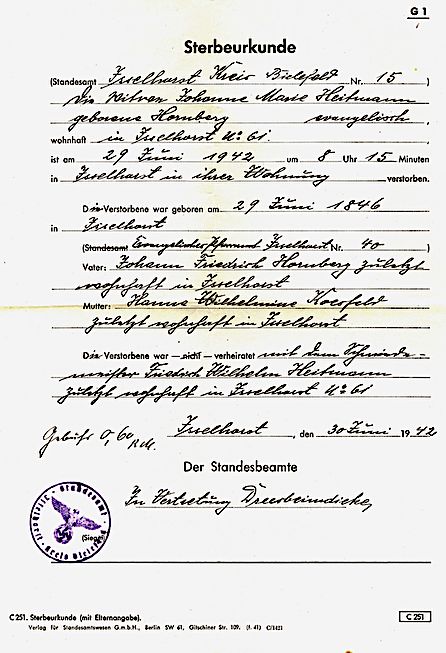 G 1
Sterbeurkunde
(Standesamt Isselhorst Kreis Bielefeld Nr. 15 )
Die Witwe Johanne Marie Heitmann
geborene Hornberg evangelisch,
wohnhaft in Isselhorst No 61.
ist am 29 Juni 1942 um 8 Uhr 15 Minuten
in Isselhorst in ihrer Wohnung verstorben.
Die Verstorbene war geboren am 29 Juni 1846
in Isselhorst
(Standesamt Evangelisches Pfarramt Isselhorst Nr. 40 )
Vater: Johann Friedrich Hornberg zuletzt
wohnhaft in Isselhorst
Mutter: Hanne Wilhelmine Koesfeld
zuletzt wohnhaft in Isselhorst
Die Verstorbene war — nicht — verheiratet mit dem Schneide-
meister Friedrich Wilhelm Heitmann
zuletzt wohnhaft in Isselhorst No 61
Gebühr 0,60 Isselhorst, den 30 Juni 1942
Der Standesbeamte
In Vertretung
Standesamt
Isselhorst
Kreis Bielefeld
(Siegel)
C 251. Sterbeurkunde (mit Elternangabe).
Verlag für Standesamtswesen G.m.b.H., Berlin SW 61, Gitschiner Str. 109. (f. 41) C/1421
C 251